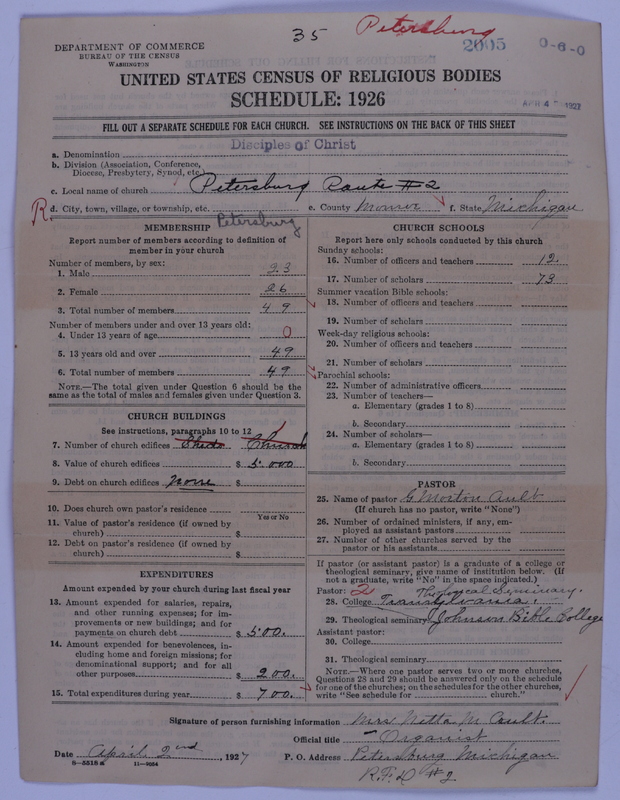 35 Petersburg
2005 0-6-0
DEPARTMENT OF COMMERCE
BUREAU OF THE CENSUS
WASHINGTON
UNITED STATES CENSUS OF RELIGIOUS BODIES
SCHEDULE: 1926
APR 4 1927
FILL OUT A SEPARATE SCHEDULE FOR EACH CHURCH. SEE INSTRUCTIONS ON THE BACK OF THIS SHEET
a. Denomination Disciples of Christ
b. Division (Association, Conference, Diocese, Presbytery, Synod, etc.)
c. Local name of church Petersburg Route #2
R d. City, town, village, or township, etc. Petersburg e. County Monroe f. State Michigan
MEMBERSHIP
Report number of members according to definition of member in your church
Number of members, by sex:
1. Male 23
2. Female 26
3. Total number of members 49
Number of members under and over 13 years old:
4. Under 13 years of age 0
5. 13 years old and over 49
6. Total number of members 49
NOTE.—The total given under Question 6 should be the same as the total of males and females given under Question 3.
CHURCH BUILDINGS
See instructions, paragraphs 10 to 12
7. Number of church edifices Church
8. Value of church edifices $ 5.000
9. Debt on church edifices none $
10. Does church own pastor's residence
Yes or No
11. Value of pastor's residence (if owned by church) $
12. Debt on pastor's residence (if owned by church) $
EXPENDITURES
Amount expended by your church during last fiscal year
13. Amount expended for salaries, repairs, and other running expenses; for improvements or new buildings; and for payments on church debt $ 500.
14. Amount expended for benevolences, including home and foreign missions; for denominational support; and for all other purposes $ 200.
15. Total expenditures during year $ 700.
CHURCH SCHOOLS
Report here only schools conducted by this church
Sunday schools:
16. Number of officers and teachers 12.
17. Number of scholars 73
Summer vacation Bible schools:
18. Number of officers and teachers
19. Number of scholars
Week-day religious schools:
20. Number of officers and teachers
21. Number of scholars
Parochial schools:
22. Number of administrative officers
23. Number of teachers—
a. Elementary (grades 1 to 8)
b. Secondary
24. Number of scholars—
a. Elementary (grades 1 to 8)
b. Secondary
PASTOR
25. Name of pastor G Morton Ault
(If church has no pastor, write "None")
26. Number of ordained ministers, if any, employed as assistant pastors
27. Number of other churches served by the pastor or his assistants
If pastor (or assistant pastor) is a graduate of a college or theological seminary, give name of institution below. (If not a graduate, write "No" in the space indicated.)
Pastor: 2 Theological Seminary.
28. College Transylvania.
29. Theological seminary Johnson Bible College
Assistant pastor:
30. College
31. Theological seminary
NOTE.—Where one pastor serves two or more churches, Questions 28 and 29 should be answered only on the schedule for one of the churches; on the schedules for the other churches, write "See schedule for church."
Signature of person furnishing information Mrs Netta M Ault.
Official title Organist
Date April 2nd, 1927 P. O. Address Petersburg Michigan
8-5518a 11-9084 R.F.D #2